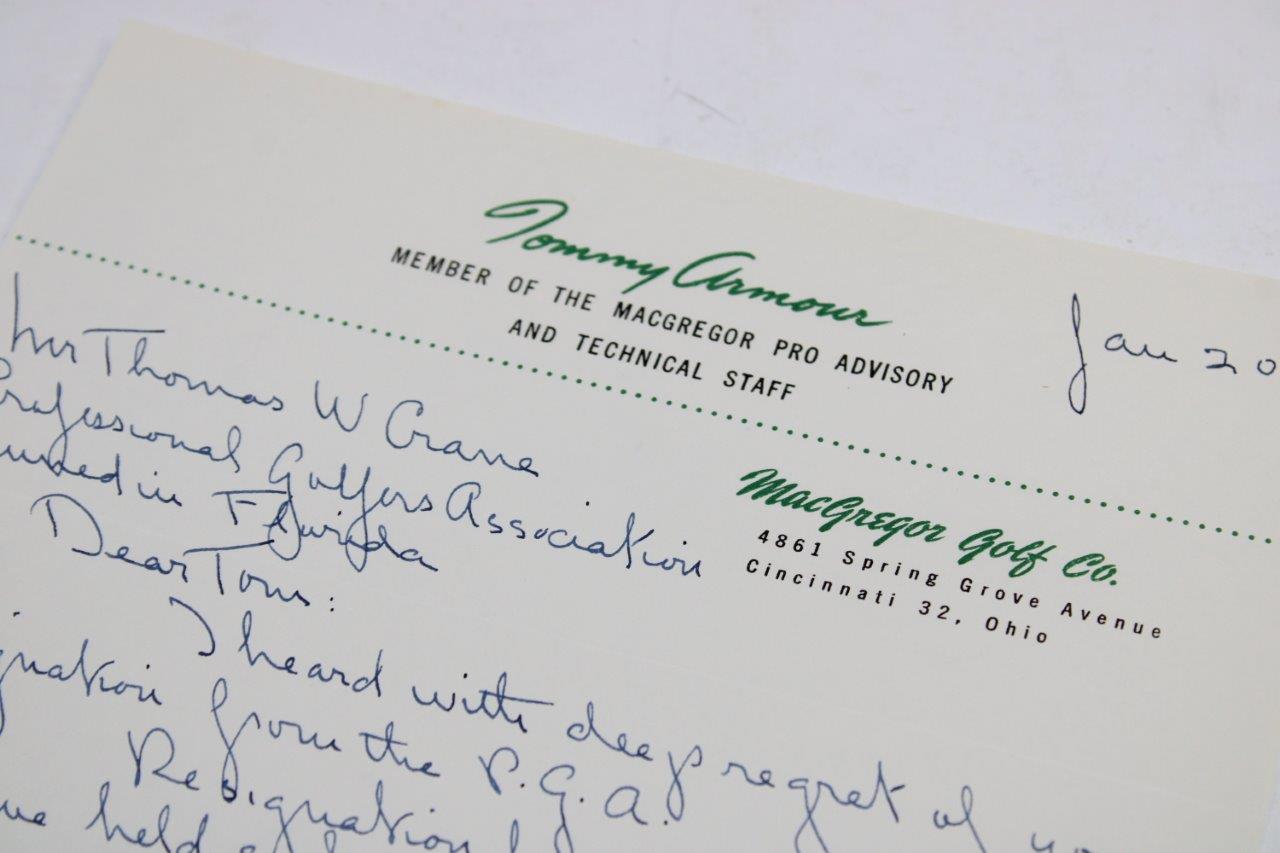 Tommy Armour
MEMBER OF THE MACGREGOR PRO ADVISORY
AND TECHNICAL STAFF
Jan 20
MacGregor Golf Co.
4861 Spring Grove Avenue
Cincinnati 32, Ohio
Mr Thomas W Crane
Professional Golfers Association
in Florida
Dear Tom:
I heard with deep regret of
from the P.G.A.
Resignation
held